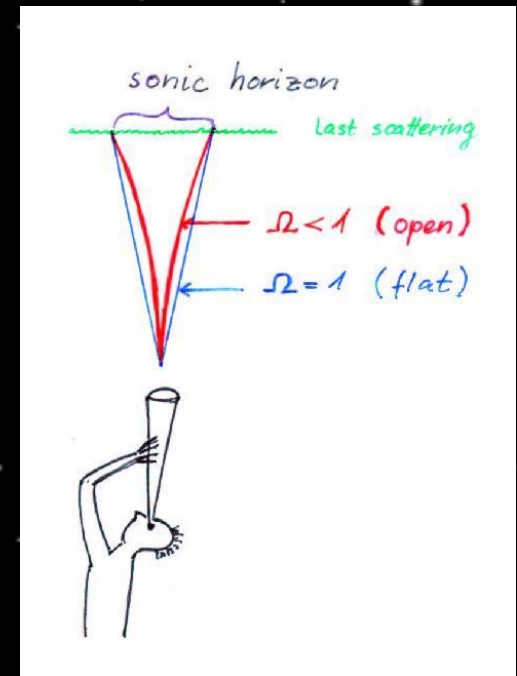 sonic horizon
Last scattering
Ω<1 (open)
Ω=1 (flat)